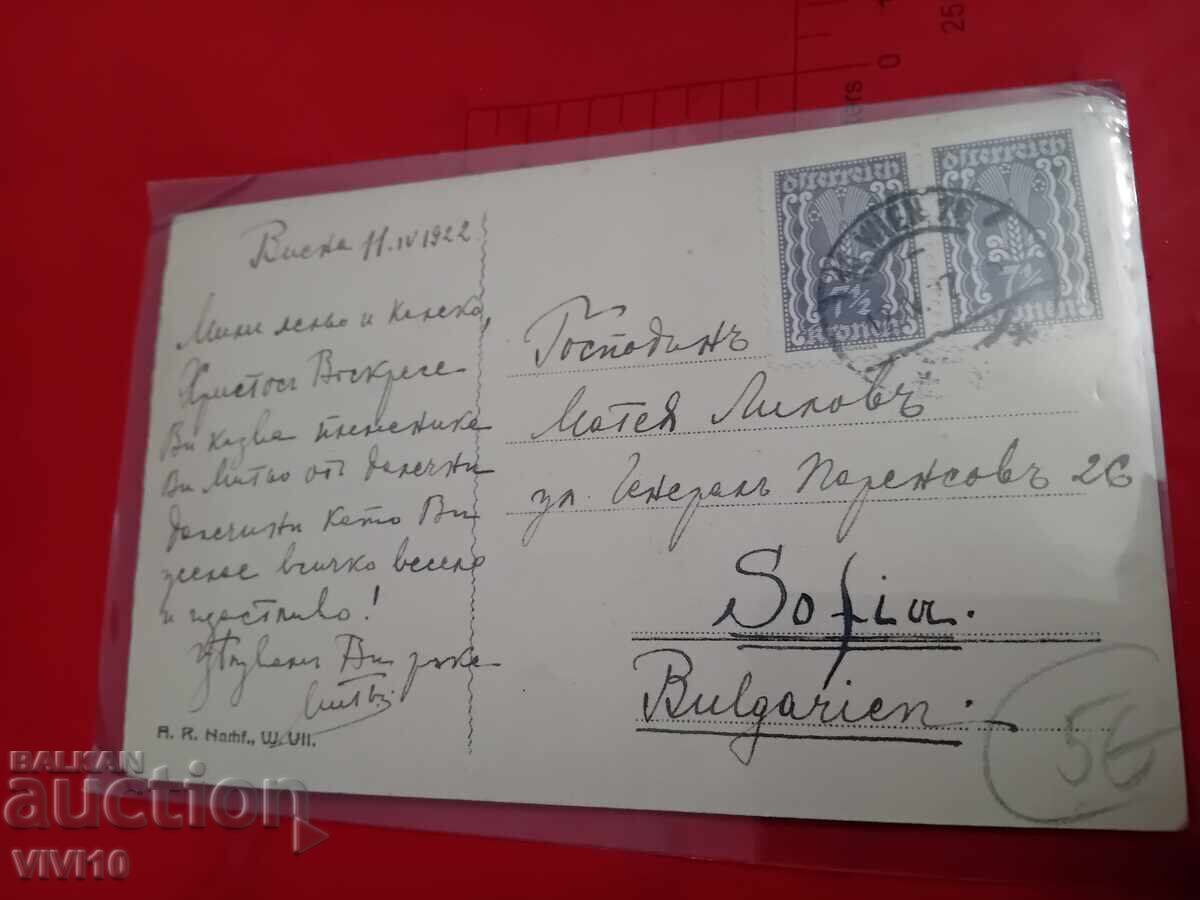 Виена 11.IV 1922
Мили леньо и Кинско,
Христосъ Воскресе
Ви казва племеника
Ви Митьо отъ далечни
далечини като Ви
желае всичко весело
и щастливо!
Цѣлувамъ Ви рѫце
A. R. Nachf., W. VII.
österreich
7½
Kronen
österreich
7½
Kronen
WIEN 76
Господинъ
Матея Лиловъ
ул. Генералъ Паренсовъ 26
Sofia.
Bulgarien.
56
0
25
BALKAN
auction
VIVI10